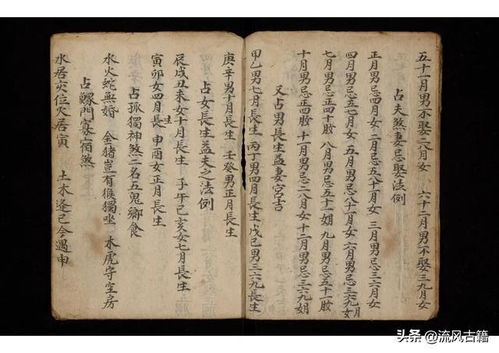 五十一月男不娶二八月女 六十二月男不娶三九月女
占夫煞妻忌娶法例
正月男忌四月女 二月男忌五八十月女 三月男忌六月女
四月男忌五七月女 五月男忌八十一月女 六月男忌三六九月女
七月男忌正四十 八月男忌五十一 九月男忌五十一
十月男忌正四 十一月男忌二八月女 十二月男忌三六九
又占男長生益妻宮吉
甲乙男七月長生 丙丁男四月長生 戊己男三六九長生
庚辛男十月長生 壬癸男正月長生
占女長生益夫之法例
辰戌丑未女十月長生 子午巳亥女七月長生
寅卯女四月長生 申酉女正月長生
占孤獨神煞二名五鬼 食
水火蛇無婚 金猪豈有 獨坐 木虎守空房
占 門寡宿煞
水居 位火居寅 土木逢巳 遇申
头条 @流风古籍